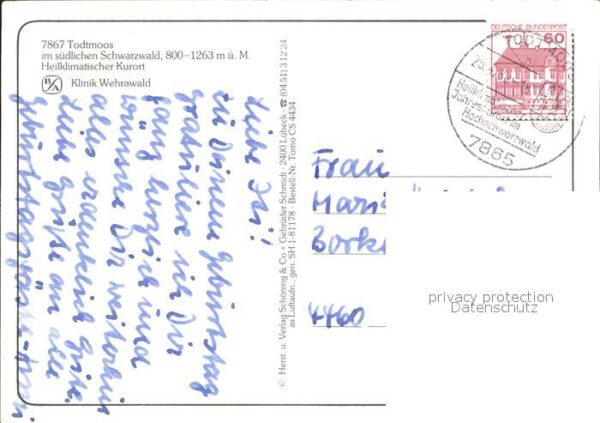 7867 Todtmoos
im südlichen Schwarzwald, 800–1263 m ü. M.
Heilklimatischer Kurort
Klinik Wehrawald
Liebe
zu Deinem Geburtstag
gratuliere ich Dir
ganz herzlich und
wünsche Dir weiterhin
alles erdenklich Gute.
Liebe Grüße an alle
© Herst. u. Verlag Schöning & Co + Gebrüder Schmidt · 2400 Lübeck · ☎ (04 51) 3 12 24
as Luftaufn., gen. SH 1-81178 · Bestell-Nr. Tomo CS 4434
DEUTSCHE BUNDESPOST
60
Heilklimatischer
Jahreskurort im
Hochschwarzwald
7865
Frau
4460
privacy protection
Datenschutz